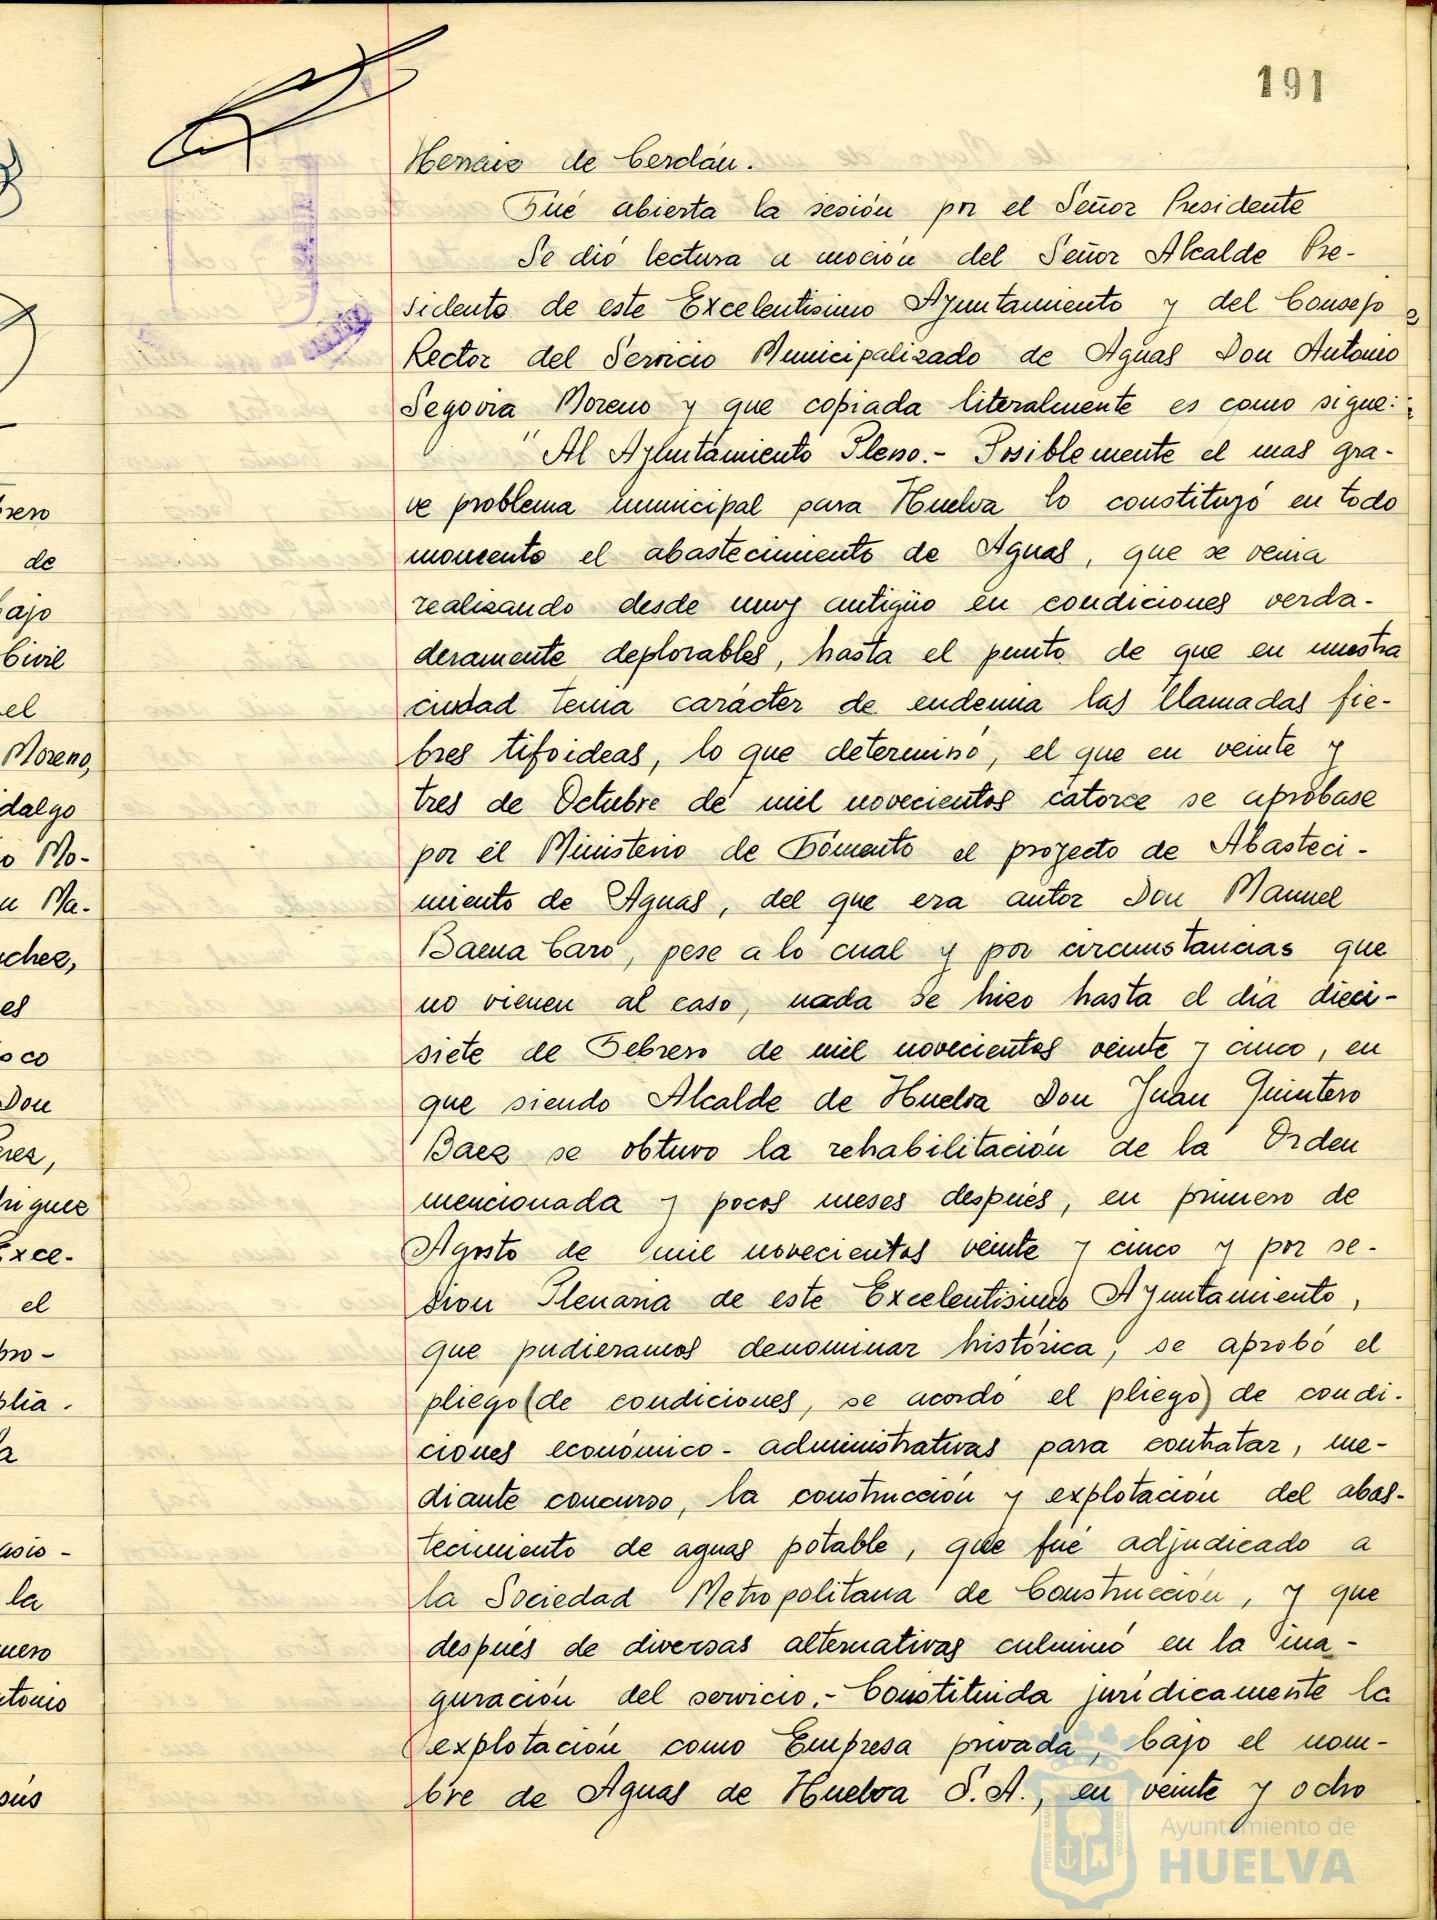 191
Henaiz de Cerdán.
Fué abierta la sesión por el Señor Presidente
Se dió lectura a moción del Señor Alcalde Pre-
sidente de este Excelentisimo Ayuntamiento y del Consejo
Rector del Servicio Municipalizado de Aguas Don Antonio
Segovia Moreno y que copiada literalmente es como sigue:
"Al Ayuntamiento Pleno.- Posiblemente el mas gra-
ve problema municipal para Huelva lo constituyó en todo
momento el abastecimiento de Aguas, que se venia
realizando desde muy antigüo en condiciones verda-
deramente deplorables, hasta el punto de que en nuestra
ciudad tenia carácter de endemia las llamadas fie-
bres tifoideas, lo que determinó, el que en veinte y
tres de Octubre de mil novecientos catorce se aprobase
por el Ministerio de Fomento el proyecto de Abasteci-
miento de Aguas, del que era autor Don Manuel
Baena Caro, pese a lo cual y por circunstancias que
no vienen al caso, nada se hizo hasta el dia dieci-
siete de Febrero de mil novecientos veinte y cinco, en
que siendo Alcalde de Huelva Don Juan Quintero
Baez se obtuvo la rehabilitación de la Orden
mencionada y pocos meses después, en primero de
Agosto de mil novecientos veinte y cinco y por se-
sion Plenaria de este Excelentisimo Ayuntamiento,
que pudieramos denominar histórica, se aprobó el
pliego (de condiciones, se acordó el pliego) de condi-
ciones económico-administrativas para contratar, me-
diante concurso, la construcción y explotación del abas-
tecimiento de aguas potable, que fué adjudicado a
la Sociedad Metropolitana de Construcción, y que
después de diversas alternativas culminó en la ina-
guración del servicio.- Constituida jurídicamente la
explotación como Empresa privada, bajo el nom-
bre de Aguas de Huelva S.A., en veinte y ocho
de
Civil
el
Moreno,
dalgo
Mo-
Ma-
chez,
es
Don
Exce-
el
la
Ayuntamiento de
HUELVA